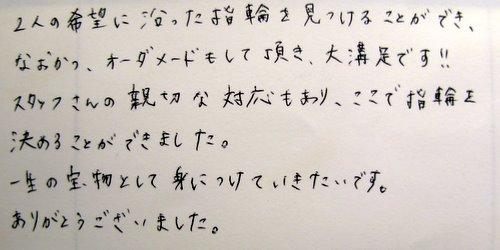 2人の希望に沿った指輪を見つけることができ、
なおかつ、オーダメードもして頂き、大満足です!!
スタッフさんの親切な対応もあり、ここで指輪を
決めることができました。
一生の宝物として身につけていきたいです。
ありがとうございました。